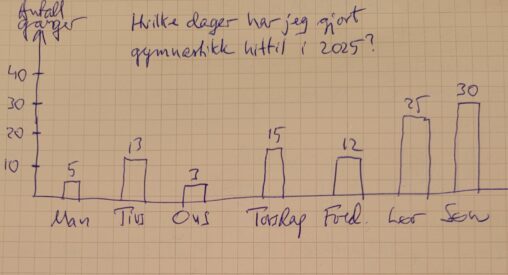 Antall
ganger
Hvilke dager har jeg gjort
gymnastikk hittil i 2025?
40
30
20
10
5
13
3
15
12
25
30
Man
Tirs
Ons
Torsdag
Fred.
Lør
Søn